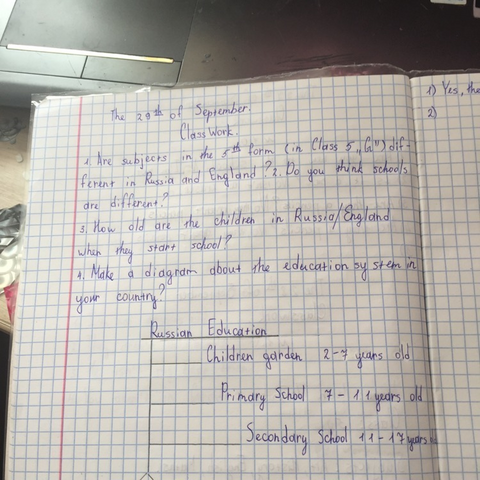 The 29th of September.
Class Work.
1. Are subjects in the 5th form (in Class 5 „G") dif-
ferent in Russia and England? 2. Do you think schools
are different?
3. How old are the children in Russia/England
when they start school?
4. Make a diagram about the education system in
your country?
Russian Education
Children garden 2-7 years old
Primary School 7-11 years old
Secondary School 11-17 years
1) Yes, the
2)